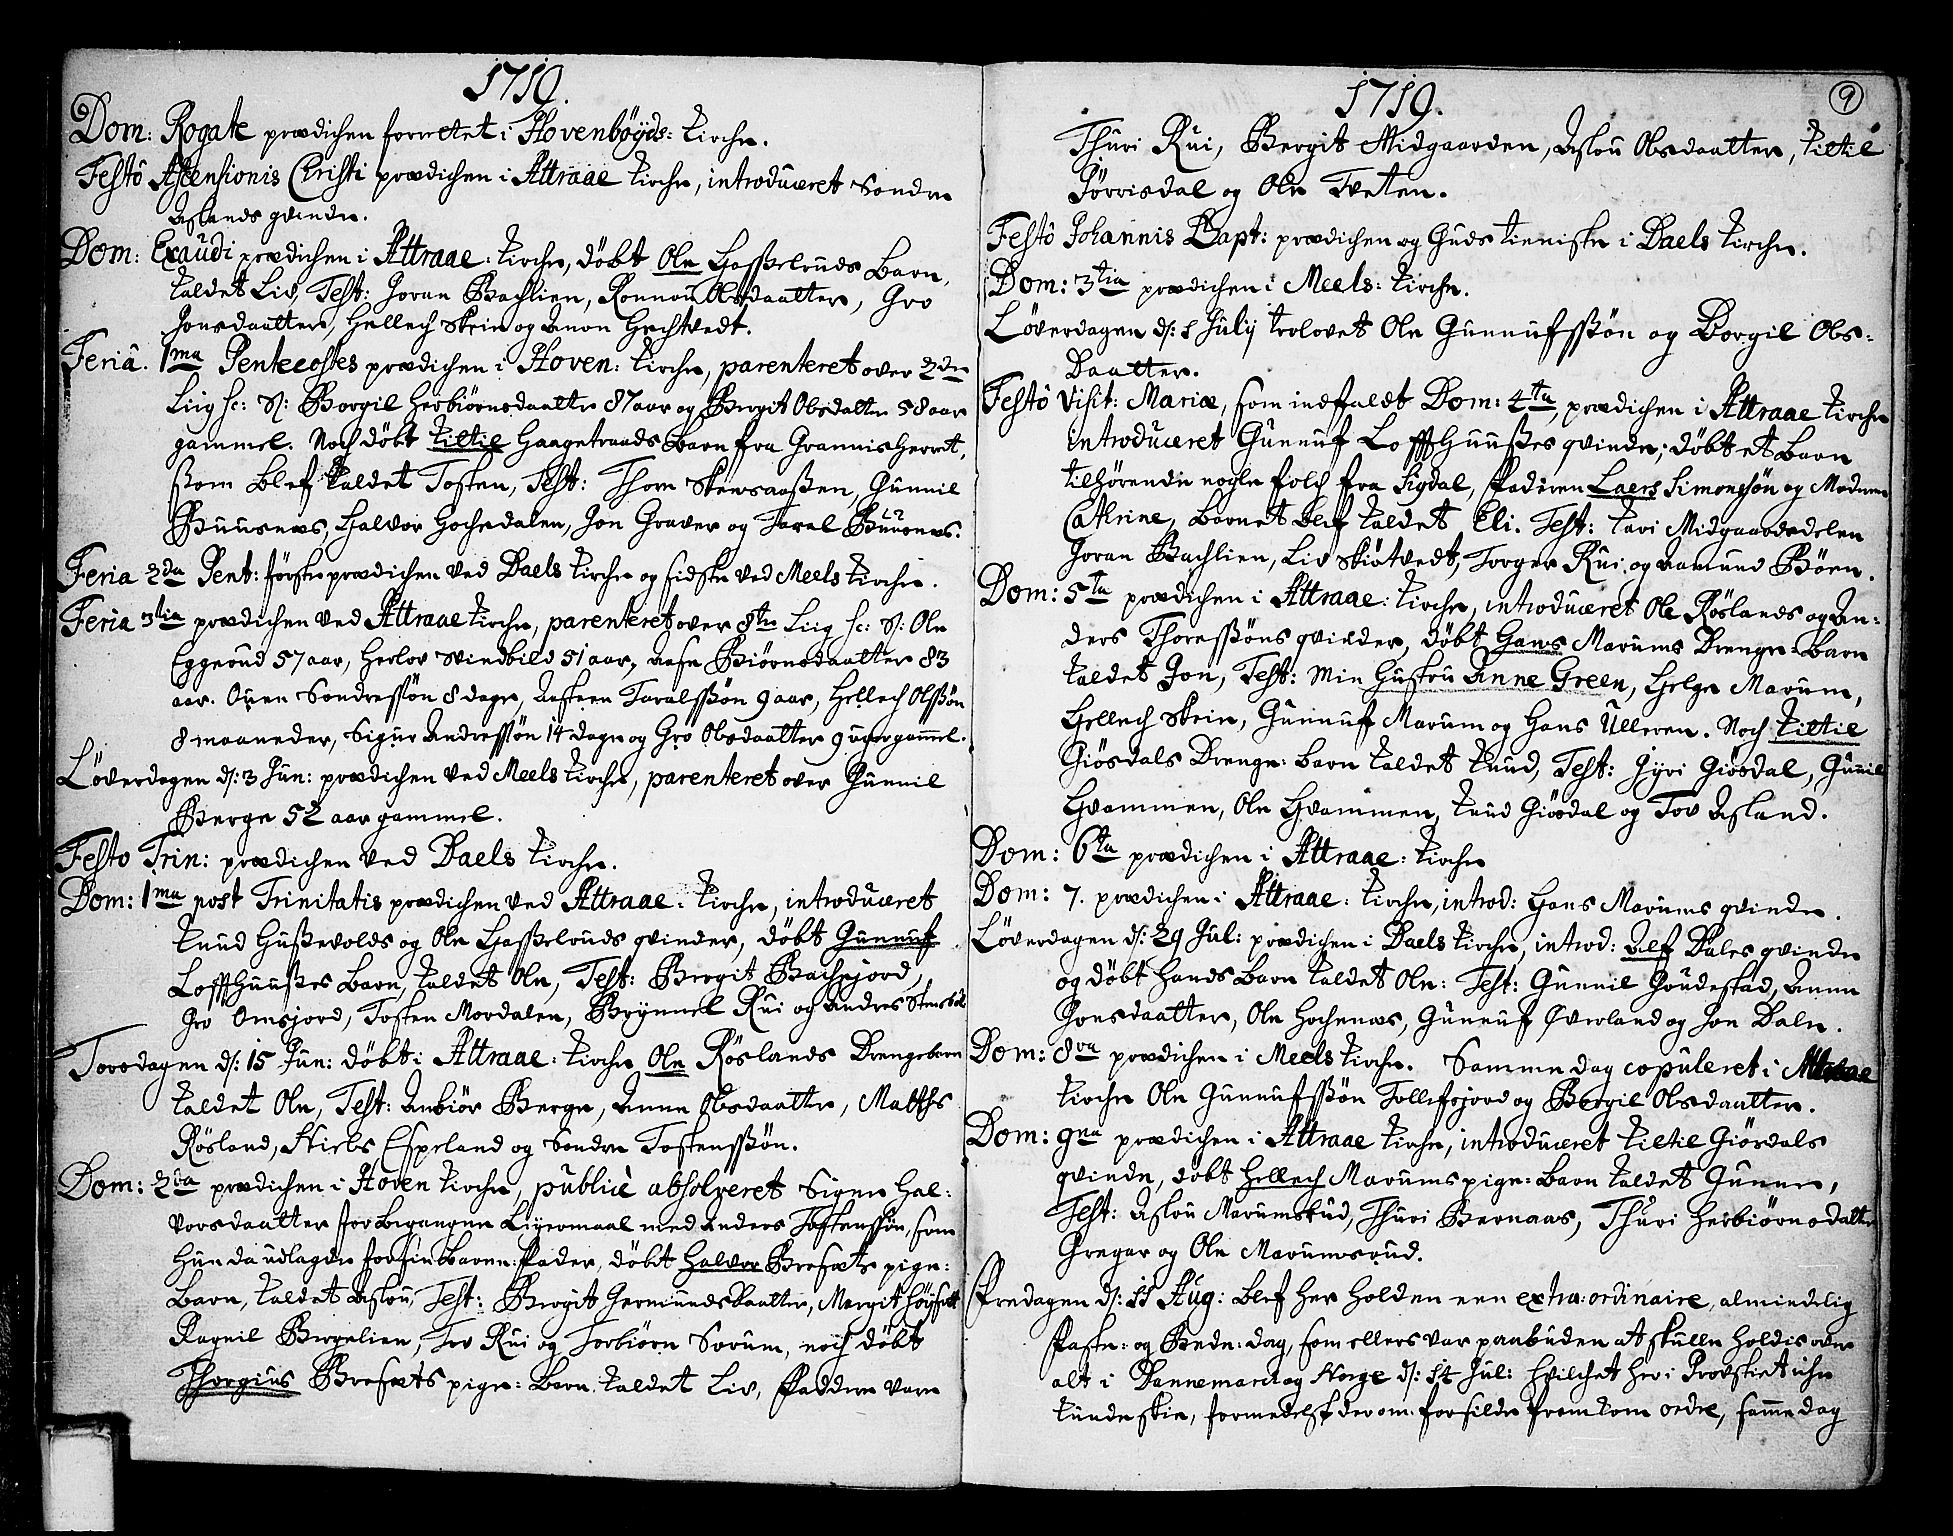 1719.
Dom: Rogate prædichen forrettet i Hovenbøyds: Kirche.
Festô Ascensionis Christi prædichen i Attraae Kirche, introduceret Sondre
Aslands qvinde.
Dom: Exaudi prædichen i Attraae: Kirche, døbt Ole Hasseleruds Barn,
kaldet Liv, Test: Joran Bachlien, Ronnou Olsdaatter, Gro
Jonsdaatter, Hellech Skeie og Anon Hechtvedt.
Feriâ. 1ma Pentecostes prædichen i Hoven: Kirche, parenteret over 2de
Liig sc: S: Borgil Herbiørnsdaatter 87 aar og Bergit Olsdatter 58 aar
gammel. Noch døbt Kittil Haagetraads Barn fra Grannisherret,
ssom blef kaldet Tosten, Test: Thore Stensaassen, Gunnil
Buusnæs, Halvor Gochsdalen, Jon Graver og Taral Buusnæs.
Feria 2da Pent: første prædichen ved Daels Kirche og sidste ved Meels Kirche.
Feria 3tia prædichen ved Attraae Kirche, parenteret over 8te Liig sc: S: Ole
Eggerud 57 aar, Herlov Svindbild 51 aar, Aase Biørnsdaatter 83
aar. Ouen Sondressøn 8 dage, Aasteen Taralssøn 9 aar, Hellech Olssøn
8 maaneder, Sigur Andressøn 14 dage og Gro Olsdaatter 9 uger gammel.
Løverdagen d: 3 Jun: prædichen ved Meels Kirche, parenteret over Gunnil
Berge 52 aar gammel.
Festo Trin: prædichen ved Daels Kirche.
Dom: 1ma post Trinitatis prædichen ved Attraae: Kirche, introduceret
Knud Hussevolds og Ole Hasseleruds qvinder, døbt Gunnuf
Loffthuusses Barn, kaldet Ole, Test: Bergit Bachejord,
Gro Omsjord, Tosten Mordalen, Brynnel Rui og Andres
Torsdagen d: 15 Jun: døbt i Attraae: Kirche Ole Røslands Drengebarn
kaldet Ole, Test: Anbiør Berge, Anne Olsdaatter, Matths
Røsland, Niels Espeland og Sondre Tostenssøn.
Dom: 2da prædichen i Hoven Kirche, publicè absolveret Signe Hal-
vorsdaatter for begangen Leyermaal med Anders Tostenssøn, som
hun da udlagde for sin Barne-Fader, døbt Halvor Brefæts pige-
Barn, kaldet Aslou, Test: Bergit Germundsdaatter, Mergit
Ragnil Bergelien, Tov Rui og Torbiørn Sorum, noch døbt
Thorgius Brefæts pige-Barn kaldet Liv, Faddere vare
1719.
9
Thuri Rui, Bergit Midgaarden, Aslou Olsdaatter, Kittil
Jørrisdal og Ole Tveten.
Festô Johannis Bapt: prædichen og Guds tieniste i Daels Kirche.
Dom: 3tia prædichen i Meels: Kirche.
Løverdagen d: 1 July trolovet Ole Gunnufssøn og Borgil Ols-
Daatter.
Festô Visit: Mariæ, som indfaldt Dom: 4ta, prædichen i Attraae Kirche
introduceret Gunnuf Loffthuusses qvinde; døbt et Barn
tilhørende nogle folch fra Sigdal, Faderen Laers Simonssøn og Moderen
Cathrine, Barnet blef kaldet Eli. Test: Kari Midgaardsdelen
Joran Bachlien, Liv Skiøtvedt, Torger Rui og Aamund Bøen.
Dom: 5ta prædichen i Attraae: Kirche, introduceret Ole Røslands og An-
ders Thoressøns qvinder, døbt Hans Marums Drenge-Barn
kaldet Jon, Test: Min Hustru Anne Green, Helge Marum,
Hellech Skeie, Gunnuf Marum og Hans Ulleren. Noch Kittil
Giøsdals Drenge-Barn kaldet Knud, Test: Gyri Giøsdal, Gunnil
Hvammen, Ole Hvammen, Knud Giøsdal og Tov Asland.
Dom: 6ta prædichen i Attraae: Kirche
Dom: 7. prædichen i Attraae: Kirche, introd: Hans Marums qvinde.
Løverdagen d: 29 Jul: prædichen i Daels Kirche, introd: Alf Dales qvinde
og døbt hands Barn kaldet Ole: Test: Gunnil Goudestad, Anne
Jonsdaatter, Ole Hochenæs, Gunnuf Øverland og Jon Dale.
Dom: 8va prædichen i Meels Kirche. Samme dag copuleret i Attraae
Kirche Ole Gunnufssøn Tollefsjord og Borgil Olsdaatter.
Dom: 9na prædichen i Attraae Kirche, introduceret Kittil Giøsdals
qvinde, døbt Hellech Marums pige-Barn kaldet Gunne,
Test: Aslou Marumsrud, Thuri Bernaas, Thuri Herbiørnsdatter
Gregar og Ole Marumsrud.
Fredagen d: 11 Aug: blef her holden een extra-ordinaire, almindelig
Faste- og Bede-dag, som ellers var paabuden at skulle holdis over
alt i Dannemarck og Norge d: 14 Jul: hvilchet her i Provstiet iche
kunde skie, formedelst derom for silde fremkom ordre, samme dag